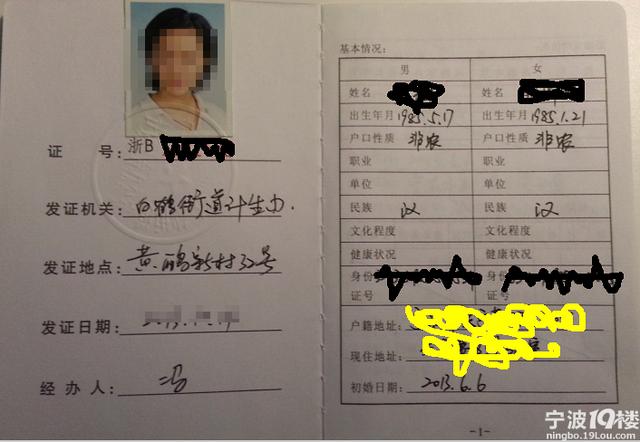 证 号: 浙B
发证机关: 白鹤街道计生办.
发证地点: 黄鹂新村32号
发证日期:
经办人: 冯
基本情况:
男 女
姓名 姓名
出生年月 1985.5.17 出生年月 1985.1.21
户口性质 非农 户口性质 非农
职业 职业
单位 单位
民族 汉 民族 汉
文化程度 文化程度
健康状况 健康状况
身份证号 证号
户籍地址:
现住地址:
初婚日期: 2013.6.6
-1-
宁波19楼
ningbo.19lou.com